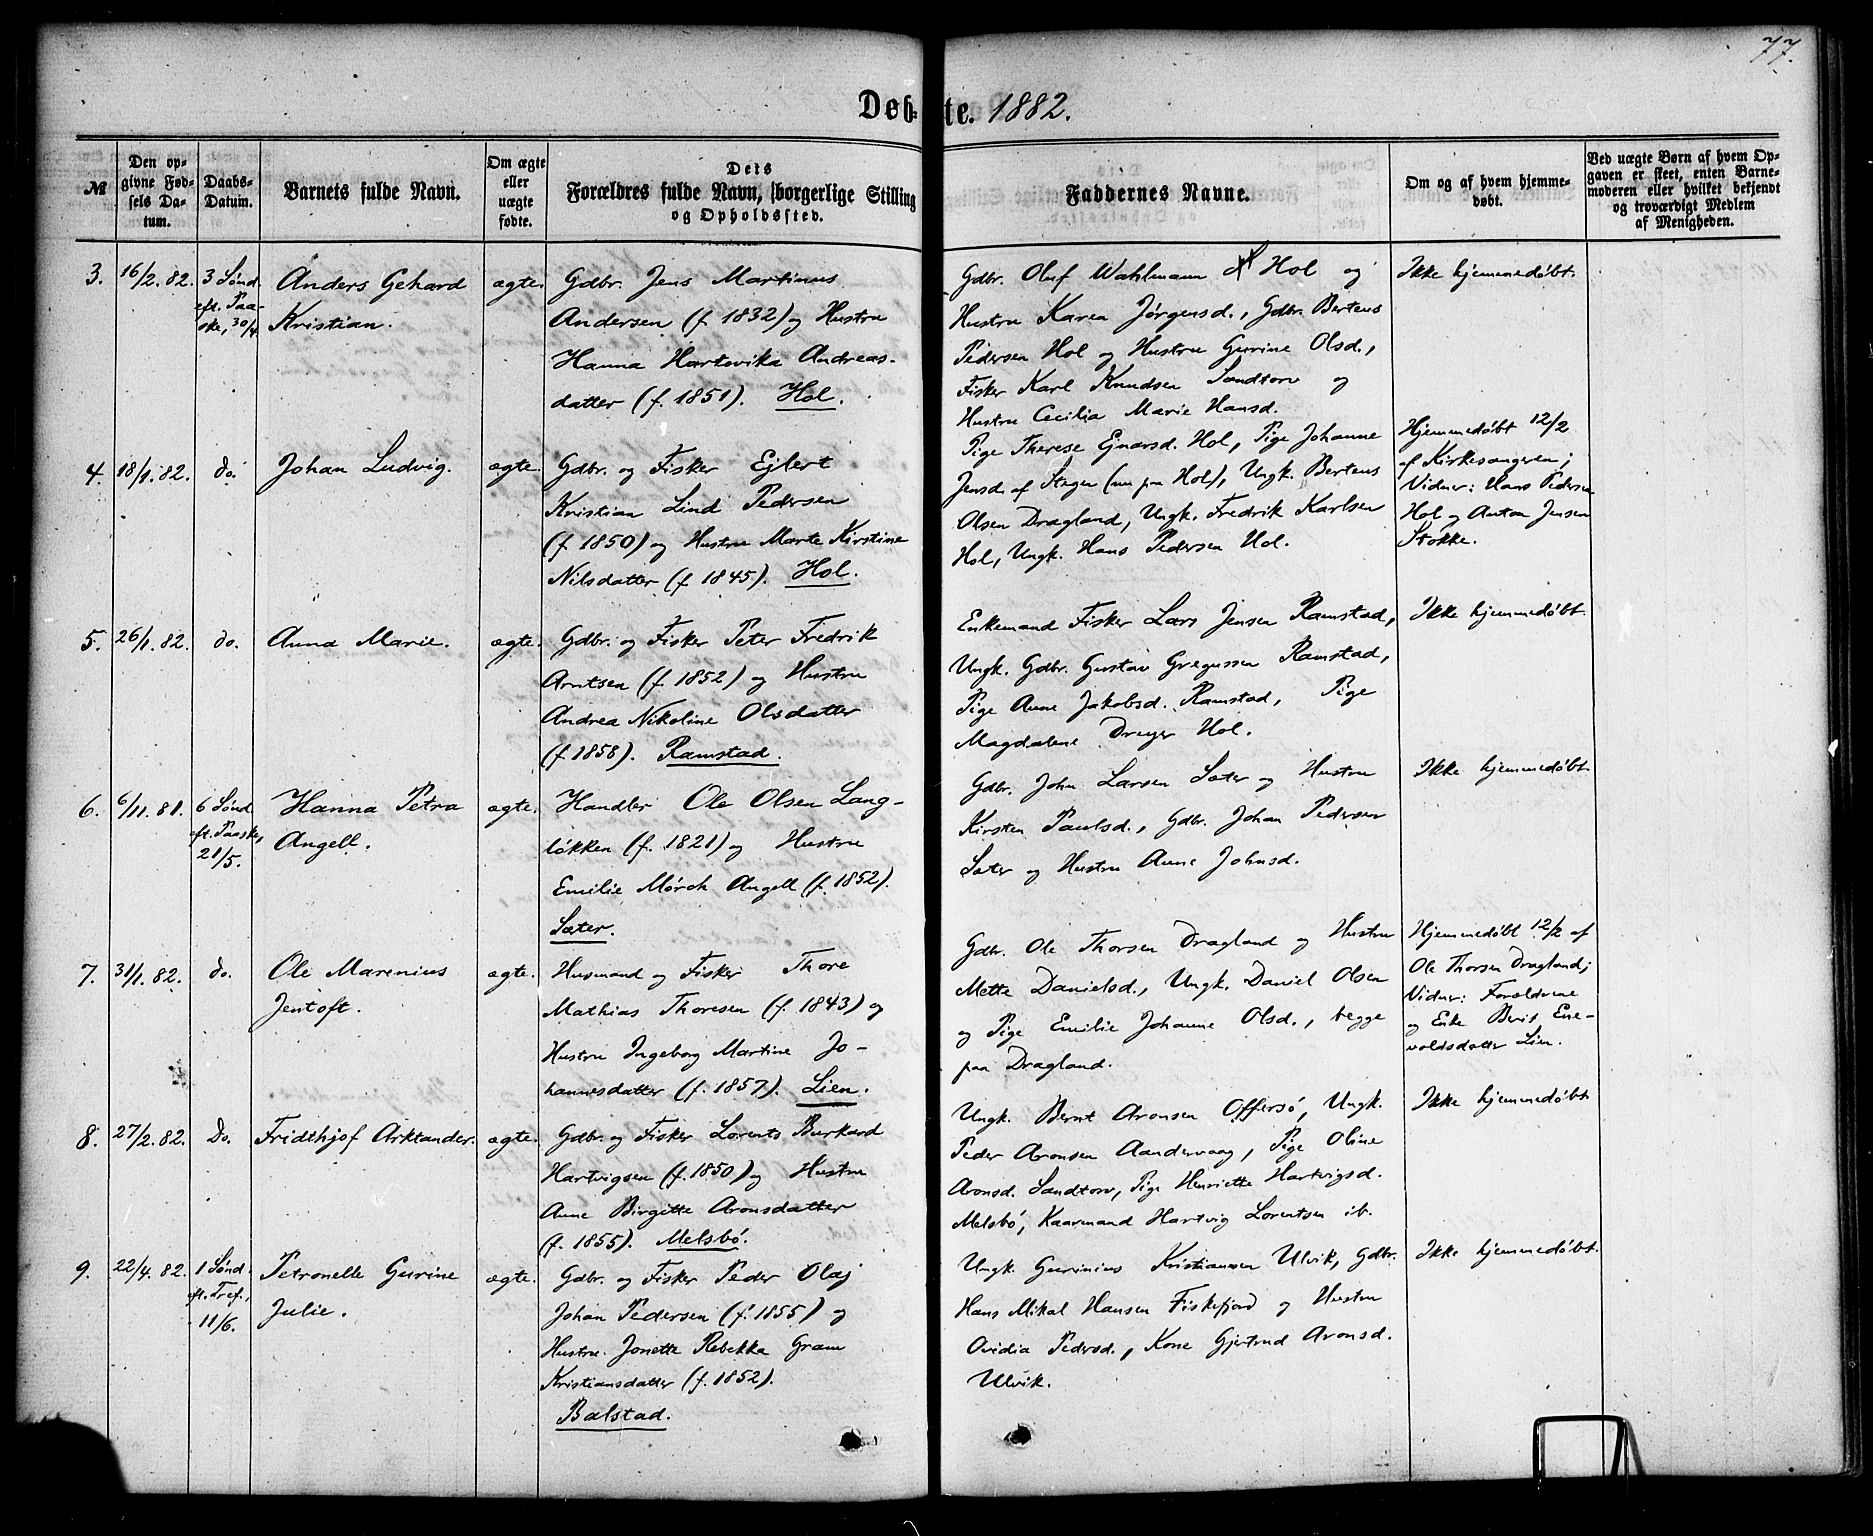 77.
Døbte. 1882.
№
Den opgivne Fødsels Datum.
Daabs-Datum.
Barnets fulde Navn.
Om ægte eller uægte fødte.
Dets Forældres fulde Navn, borgerlige Stilling og Opholdssted.
Faddernes Navne.
Om og af hvem hjemmedøbt.
Ved uægte Børn af hvem Opgaven er skeet, enten Barnemoderen eller hvilket bekjendt og troværdigt Medlem af Menigheden.
3.
16/2. 82.
3 Sønd.
eft. Paa-
ske, 30/4
Anders Gehard
Kristian.
ægte.
Gdbr. Jens Martinus
Andersen (f. 1832) og Hustru
Hanna Hartvika Andreas-
datter (f. 1851). Hol.
Gdbr. Oluf Wahlmann Hol og
Hustru Karen Jørgensd., Gdbr. Bertens
Pedersen Hol og Hustru Gurine Olsd.,
Fisker Karl Knudsen Sandtorv og
Hustru Cecilia Marie Hansd.
Ikke hjemmedøbt.
4.
18/1. 82.
do.
Johan Ludvig.
ægte.
Gdbr. og Fisker Ejlert
Kristian Lind Pedersen
(f. 1850) og Hustru Marte Kirstine
Nilsdatter (f. 1845). Hol.
Pige Therese Ejnarsd. Hol, Pige Johanne
Jensd. af Stegen (nu paa Hol), Ungk. Bertens
Olsen Dragland, Ungk. Fredrik Karlsen
Hol, Ungk. Hans Pedersen Hol.
Hjemmedøbt 12/2
af Kirkesangeren;
Vidner: Hans Pedersen
Hol og Anton Jensen
Stokke.
5.
26/1. 82.
do.
Anna Marie.
ægte.
Gdbr. og Fisker Peter Fredrik
Arntsen (f. 1852) og Hustru
Andrea Nikoline Olsdatter
(f. 1858). Ramstad.
Enkemand Fisker Lars Jensen Ramstad,
Ungk. Gdbr. Gustav Gregussen Ramstad,
Pige Anne Jakobsd. Ramstad, Pige
Magdalene Dreyer Hol.
Ikke hjemmedøbt.
6.
6/11. 81.
6 Sønd.
eft. Paaske,
21/5.
Hanna Petra
Angell.
ægte.
Handler Ole Olsen Lang-
løkken (f. 1821) og Hustru
Emilie Mørch Angell (f. 1852).
Sæter.
Gdbr. John Larsen Sæter og Hustru
Kirsten Paulsd., Gdbr. Johan Pedersen
Sæter og Hustru Anne Johnsd.
Ikke hjemmedøbt.
7.
31/1. 82.
do.
Ole Marenius
Jentoft.
ægte.
Husmand og Fisker Thore
Mathias Thoresen (f. 1843) og
Hustru Ingeborg Martine Jo-
hannesdatter (f. 1857). Lien.
Gdbr. Ole Thorsen Dragland og Hustru
Mette Danielsd., Ungk. Daniel Olsen
og Pige Emilie Johanne Olsd., begge
paa Dragland.
Hjemmedøbt 12/2 af
Ole Thorsen Dragland;
Vidner: Forældrene
og Enke Berit Ene-
voldsdatter Lien.
8.
27/2. 82.
Do.
Fridthjof Arktander.
ægte.
Gdbr. og Fisker Lorents Burkard
Hartvigsen (f. 1850) og Hustru
Anne Birgitte Aronsdatter
(f. 1855). Melsbø.
Ungk. Bernt Aronsen Offersø, Ungk.
Peder Aronsen Aandervaag, Pige Oline
Aronsd. Sandtorv, Pige Henriette Hartvigsd.
Melsbø, Kaarmand Hartvig Lorentsen ib.
Ikke hjemmedøbt.
9.
22/4. 82.
1 Sønd.
eft. Tref.,
11/6.
Petronelle Gurine
Julie.
ægte.
Gdbr. og Fisker Peder Olaj
Johan Pedersen (f. 1855) og
Hustru Jonette Rebekka Gram
Kristiansdatter (f. 1852).
Balstad.
Ungk. Gurinius Kristiansen Ulvik, Gdbr.
Hans Mikal Hansen Fiskefjord og Hustru
Ovidia Pedersd., Kone Gjertrud Aronsd.
Ulvik.
Ikke hjemmedøbt.